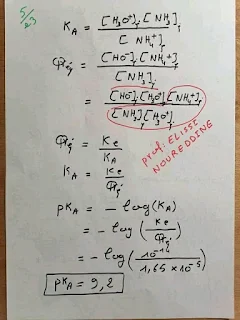 5/23
K_A = [H₃O⁺]_f . [NH₃]_f / [NH₄⁺]_f
Qr,éq = [HO⁻]_f . [NH₄⁺]_f / [NH₃]_f
= [HO⁻]_f . [H₃O⁺]_f . [NH₄⁺]_f / [NH₃]_f . [H₃O⁺]_f
Prof: ELISSE
NOUREDDINE
Qr,éq = Ke / K_A
K_A = Ke / Qr,éq
pK_A = - log(K_A)
= - log(Ke / Qr,éq)
= - log(10⁻¹⁴ / 1,65 × 10⁻⁵)
pK_A = 9,2